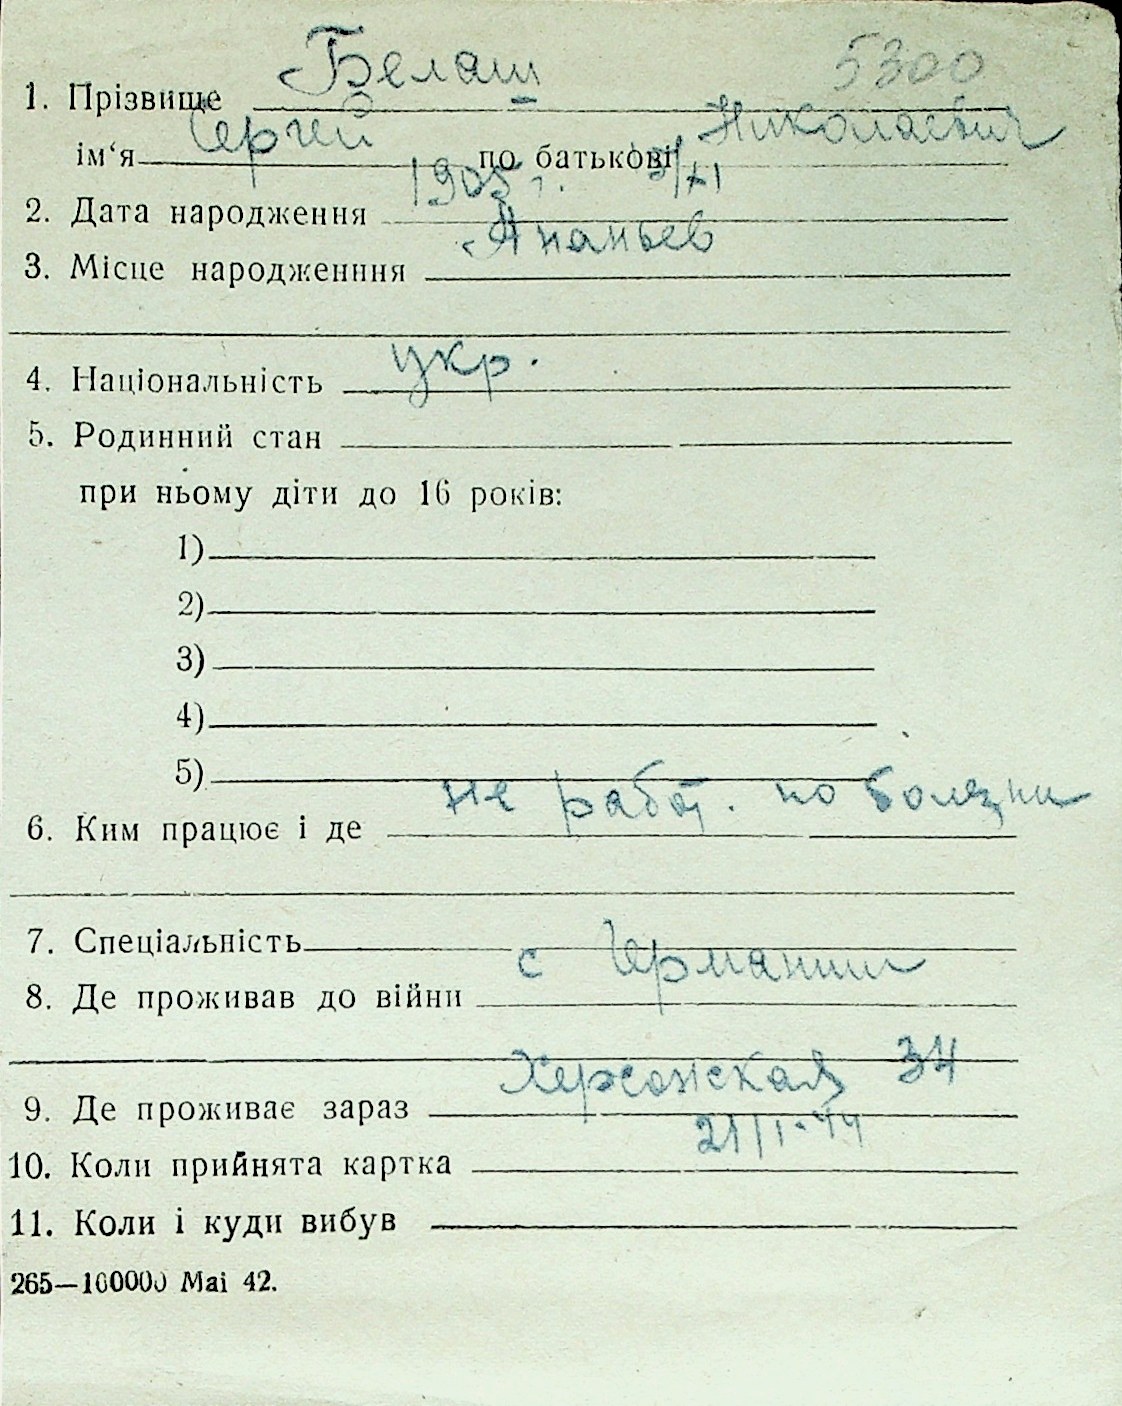 5300
1. Прізвище Белаш
ім‘я Сергей по батькові Николаевич
2. Дата народження 1905 г. 3/XI
3. Місце народженння Ананьев
4. Національність укр.
5. Родинний стан
при ньому діти до 16 років:
1)
2)
3)
4)
5)
6. Ким працює і де не работ. по болезни
7. Спеціальність
8. Де проживав до війни с Германии
9. Де проживає зараз Херсонская 34
10. Коли прийнята картка 21/I-44
11. Коли і куди вибув
265—100000 Mai 42.